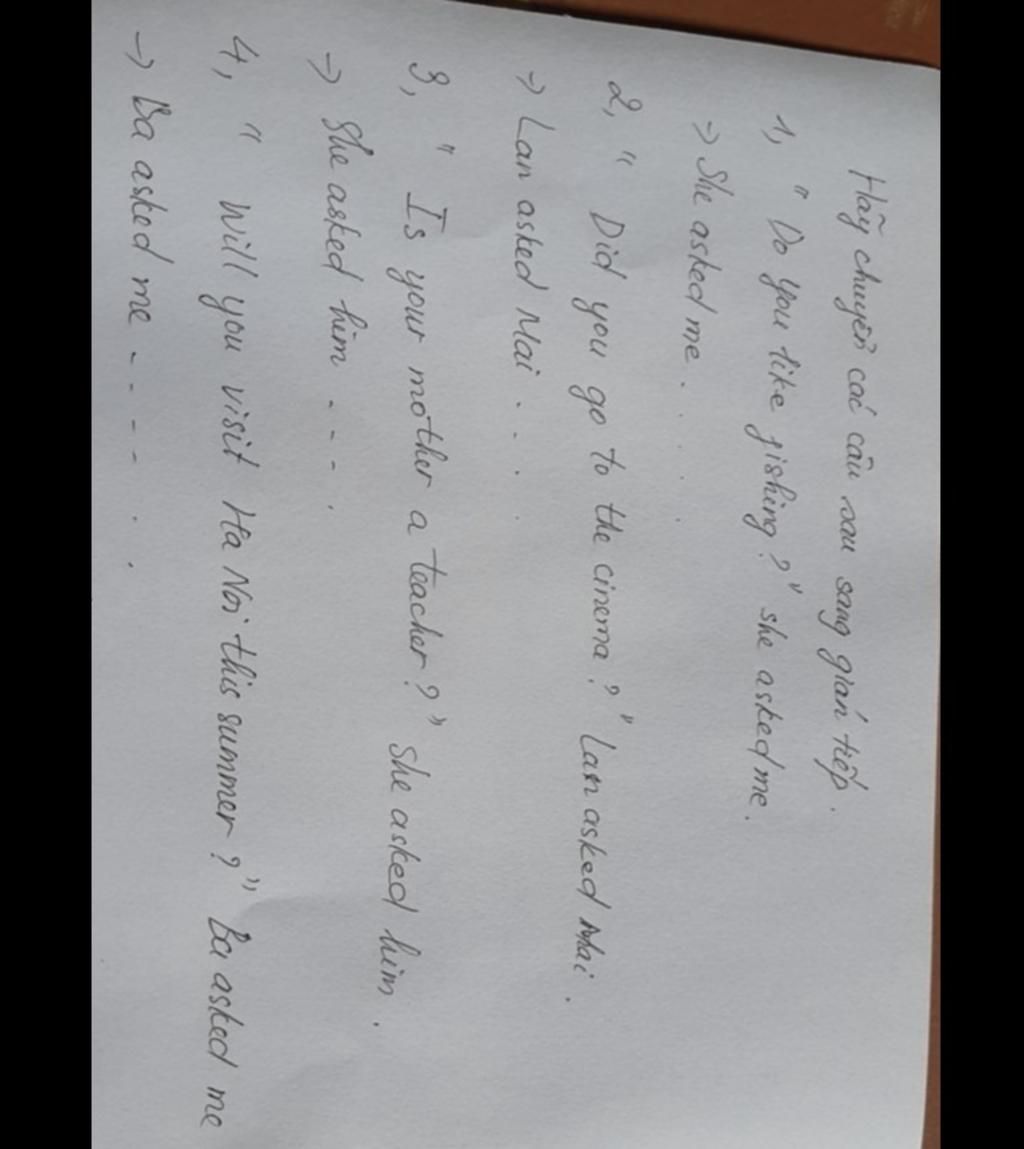 Hãy chuyển các câu sau sang gián tiếp.
1, " Do you like fishing?" she asked me.
-> She asked me. . . .
2, " Did you go to the cinema?" Lan asked Mai.
-> Lan asked Mai . . . .
3, " Is your mother a teacher?" She asked him.
-> She asked him . - - .
4, " Will you visit Ha Noi this summer?" Ba asked me
-> Ba asked me - - - - . .